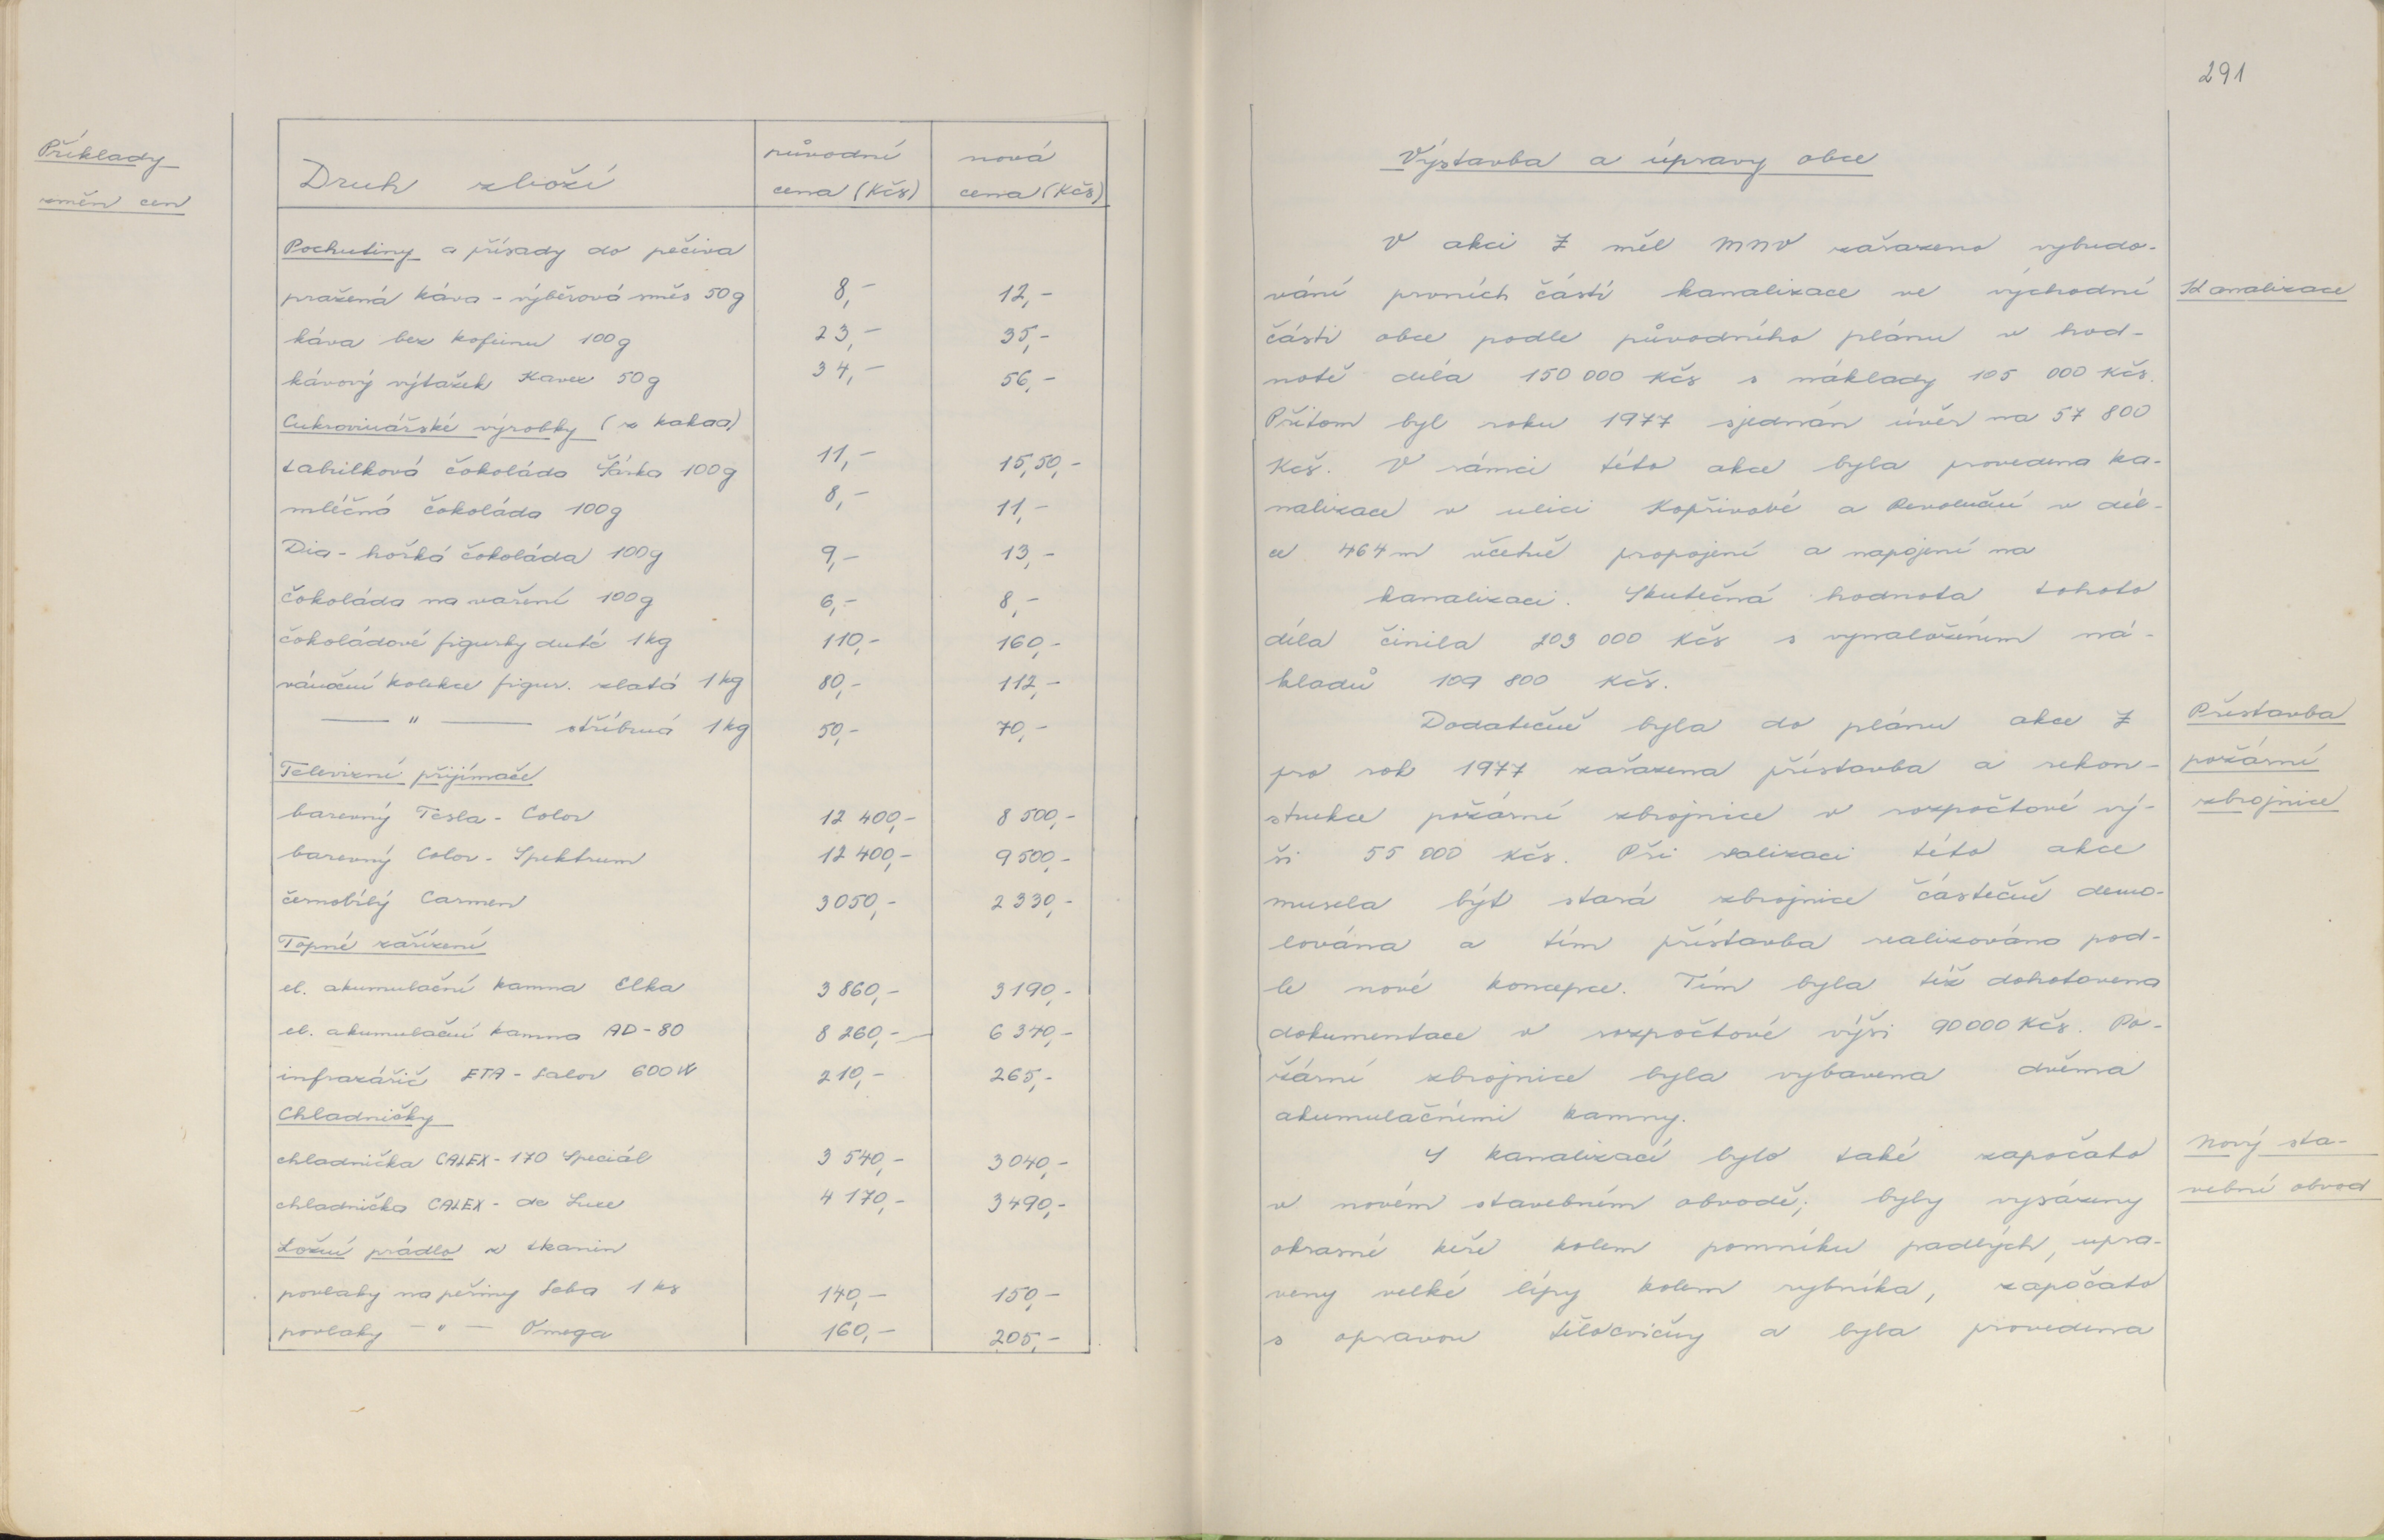 Příklady
změn cen
Druh zboží
původní
cena (Kčs)
nová
cena (Kčs)
Pochutiny a přísady do pečiva
pražená káva - výběrová směs 50g 8,- 12,-
káva bez kofeinu 100g 23,- 35,-
kávový výtažek Kavex 50g 34,- 56,-
Cukrovinářské výrobky (z kakaa)
tabulková čokoláda Šárka 100g 11,- 15,50,-
mléčná čokoláda 100g 8,- 11,-
Dia - hořká čokoláda 100g 9,- 13,-
čokoláda na vaření 100g 6,- 8,-
čokoládové figurky duté 1kg 110,- 160,-
vánoční kolekce figur. zlatá 1kg 80,- 112,-
— " — stříbrná 1kg 50,- 70,-
Televizní přijímače
barevný Tesla - Color 12 400,- 8 500,-
barevný Color - Spektrum 12 400,- 9 500,-
černobílý Carmen 3050,- 2 330,-
Topné zařízení
el. akumulační kamna Elka 3 860,- 3 190,-
el. akumulační kamna AD-80 8 260,- 6 370,-
infrazářič ETA - Salov 600W 210,- 265,-
Chladničky
chladnička CALEX - 170 Speciál 3 540,- 3 040,-
chladnička CALEX - de Luxe 4 170,- 3 490,-
Ložní prádlo z tkanin
povlaky na peřiny Saba 1 ks 140,- 150,-
povlaky — " — Omega 160,- 205,-
291
Výstavba a úpravy obce
V akci Z měl MNV zařazeno vybudo-
vání prvních částí kanalizace ve východní
Kanalizace
části obce podle původního plánu v hod-
notě díla 150 000 Kčs s náklady 105 000 Kčs.
Přitom byl roku 1977 sjednán úvěr na 57 800
Kčs. V rámci této akce byla provedena ka-
nalizace v ulici Kopřivové a Revoluční v dél-
ce 464m včetně propojení a napojení na
kanalizaci. Skutečná hodnota tohoto
díla činila 203 000 Kčs s vynaložením ná-
kladů 109 800 Kčs.
Dodatečně byla do plánu akce Z
Přístavba
požární
zbrojnice
pro rok 1977 zařazena přístavba a rekon-
strukce požární zbrojnice v rozpočtové vý-
ši 55 000 Kčs. Při realizaci této akce
musela být stará zbrojnice částečně demo-
lována a tím přístavba realizována pod-
le nové koncepce. Tím byla též dohotovena
dokumentace v rozpočtové výši 90 000 Kčs. Po-
žární zbrojnice byla vybavena dvěma
akumulačními kamny.
S kanalizací bylo také započato
Nový sta-
vební obvod
v novém stavebním obvodě; byly vysázeny
okrasné keře kolem pomníku padlých, upra-
veny velké lípy kolem rybníka, započato
s opravou tělocvičny a byla provedena